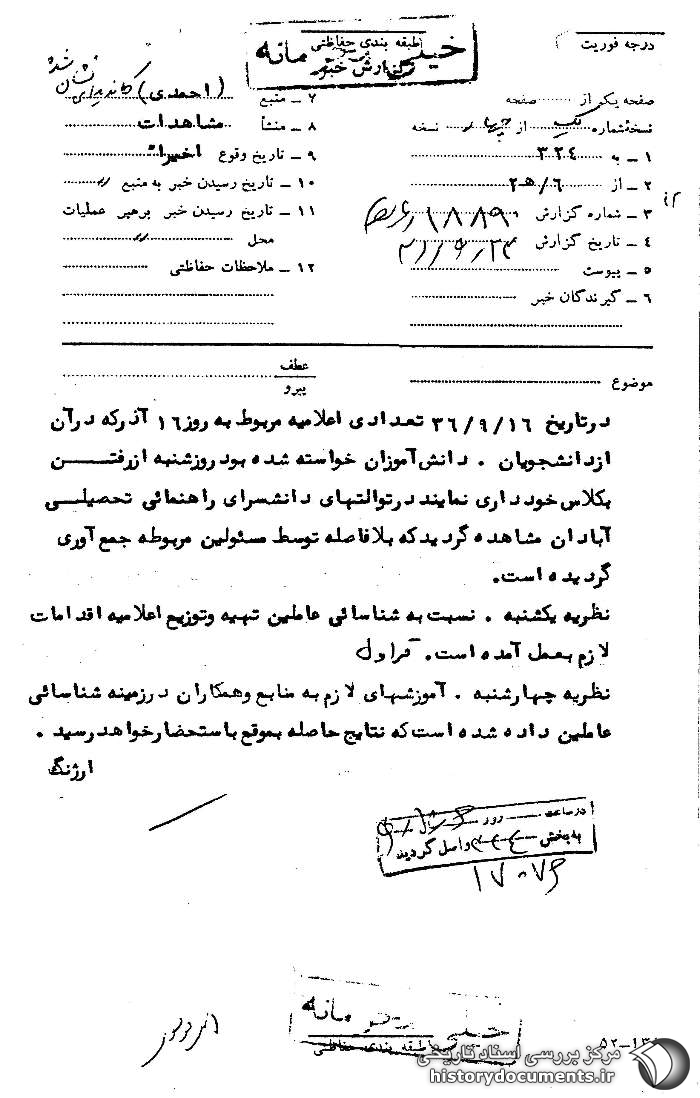 طبقه بندی حفاظتی
خیلی محرمانه
گزارش خبر
درجه فوریت
صفحه یک از صفحه
نسخهٔ شماره یک از چهار نسخه
۱ ـ به ۳۲۴
۲ ـ از ۶/هـ۲
۳ ـ شماره گزارش
۴ ـ تاریخ گزارش
۵ ـ پیوست
۶ ـ گیرندگان خبر
۷ ـ منبع (احمدی)
۸ ـ منشأ مشاهدات
۹ ـ تاریخ وقوع اخیراً
۱۰ ـ تاریخ رسیدن خبر به منبع ״
۱۱ ـ تاریخ رسیدن خبر برهبر عملیات
محل ״
۱۲ ـ ملاحظات حفاظتی
موضوع
عطف
پیرو
درتاریخ ۳۶/۹/۱۶ تعدادی اعلامیه مربوط به روز ۱۶ آذر که درآن
ازدانشجویان . دانش‌آموزان خواسته شده بود روزشنبه ازرفتن
بکلاس خودداری نمایند درتوالتهای دانشسرای راهنمائی تحصیلی
آبادان مشاهده گردید که بلافاصله توسط مسئولین مربوطه جمع آوری
گردیده است.
نظریه یکشنبه . نسبت به شناسائی عاملین تهیه وتوزیع اعلامیه اقدامات
لازم بعمل آمده است. قراول
نظریه چهارشنبه . آموزشهای لازم به منابع وهمکاران درزمینه شناسائی
عاملین داده شده است که نتایج حاصله بموقع باستحضار خواهد رسید .
ارژنگ
در ساعت روز
به بخش ۳۲۴ واصل گردید
۱۷۰۷۶
خیلی محرمانه
طبقه بندی حفاظتی
مرکز بررسی اسناد تاریخی
historydocuments.ir